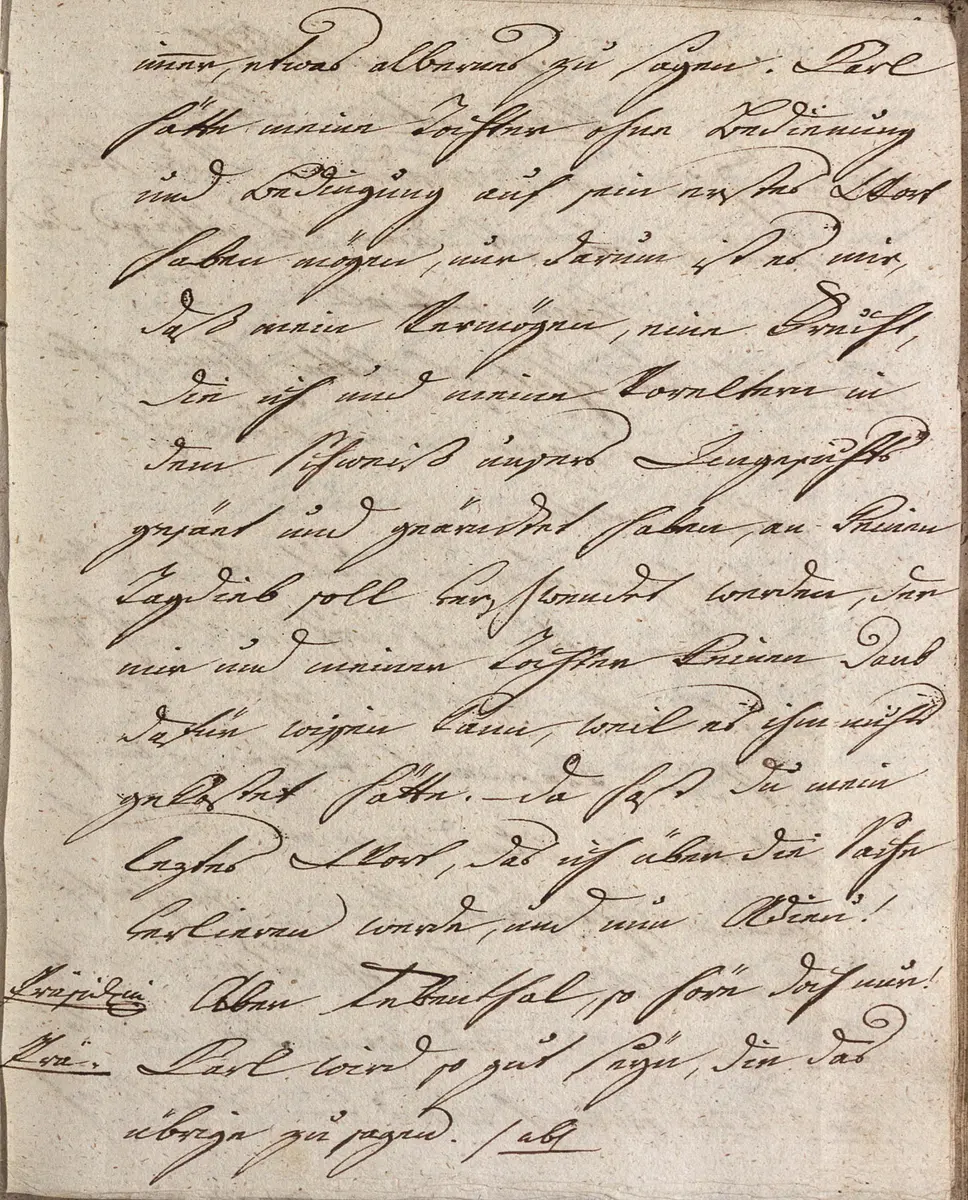 immer, etwas albernes zu sagen. Karl
hätte meine Tochter ohne Bedienung
und Bedingung auf sein erstes Wort
haben mögen, nur darum ist es mir,
daß mein Vermögen, eine Frucht,
die ich und meine Voreltern in
dem Schweiß unsers Angesichts
gesäet und geärndtet haben, an keinen
Tagdieb soll verschwendet werden, der
mir und meiner Tochter keinen Dank
dafür wissen kann, weil es ihm nichts
gekostet hätte. – Da hast du mein
leztes Wort, das ich über die Sache
verlieren werde, und nun Adieu!
Präsidtin Aber Lebenthal, so höre doch nur!
Prä. Karl wird so gut seyn, die das
übrige zu sagen. /ab/